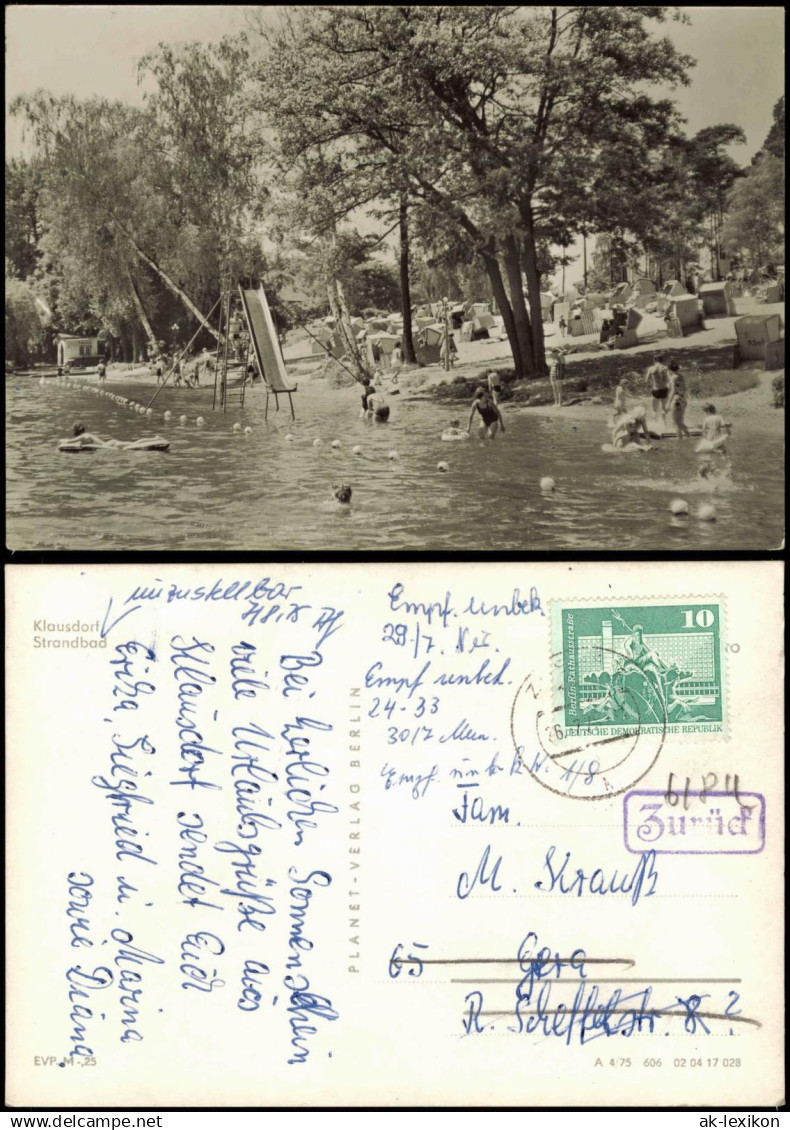 Klausdorf
Strandbad
unzustellbar
Bei herlichen Sonnenschein
viele Urlaubsgrüße aus
Klausdorf sendet Euch
Erika, Siegfried u. Marina
sowie Diana.
EVP M -,25
PLANET-VERLAG BERLIN
Empf. unbek.
29/7.
Empf unbek.
24-33
Empf. unbek. 1/8
10
Berlin · Rathausstraße
DEUTSCHE DEMOKRATISCHE REPUBLIK
Zurück
Fam.
M. Krauß
65 Gera
R. Scheffelstr. 8 ?
A 4/75 606 02 04 17 028
ak-lexikon